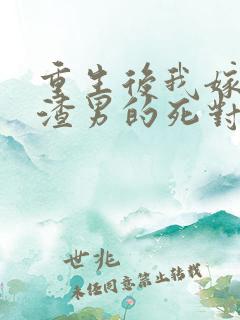 重生後我嫁
渣男的死對
世兆
未经同意禁止转载